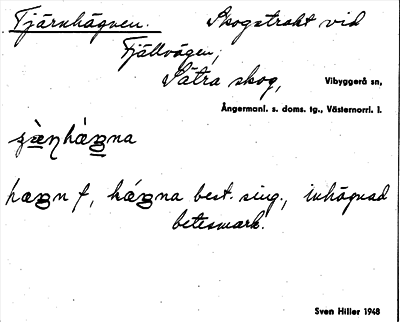 Tjärnhägnen. Skogstrakt vid
Fjällvägen,
Sätra skog, Vibyggerå sn,
Ångermanl. s. doms. tg., Västernorrl. l.
hægn f, hægna best. sing., inhägnad
betesmark.
Sven Hiller 1948